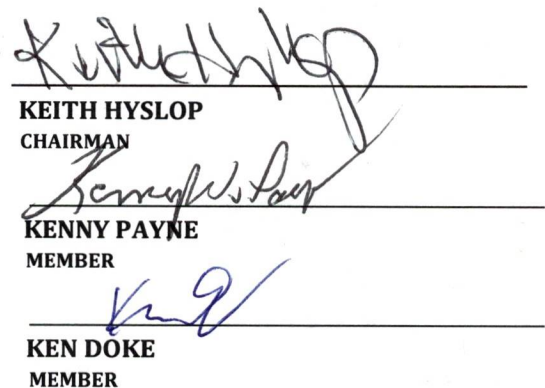 Keith Hyslop
KEITH HYSLOP
CHAIRMAN
Kenny W. Payne
KENNY PAYNE
MEMBER
KEN DOKE
MEMBER